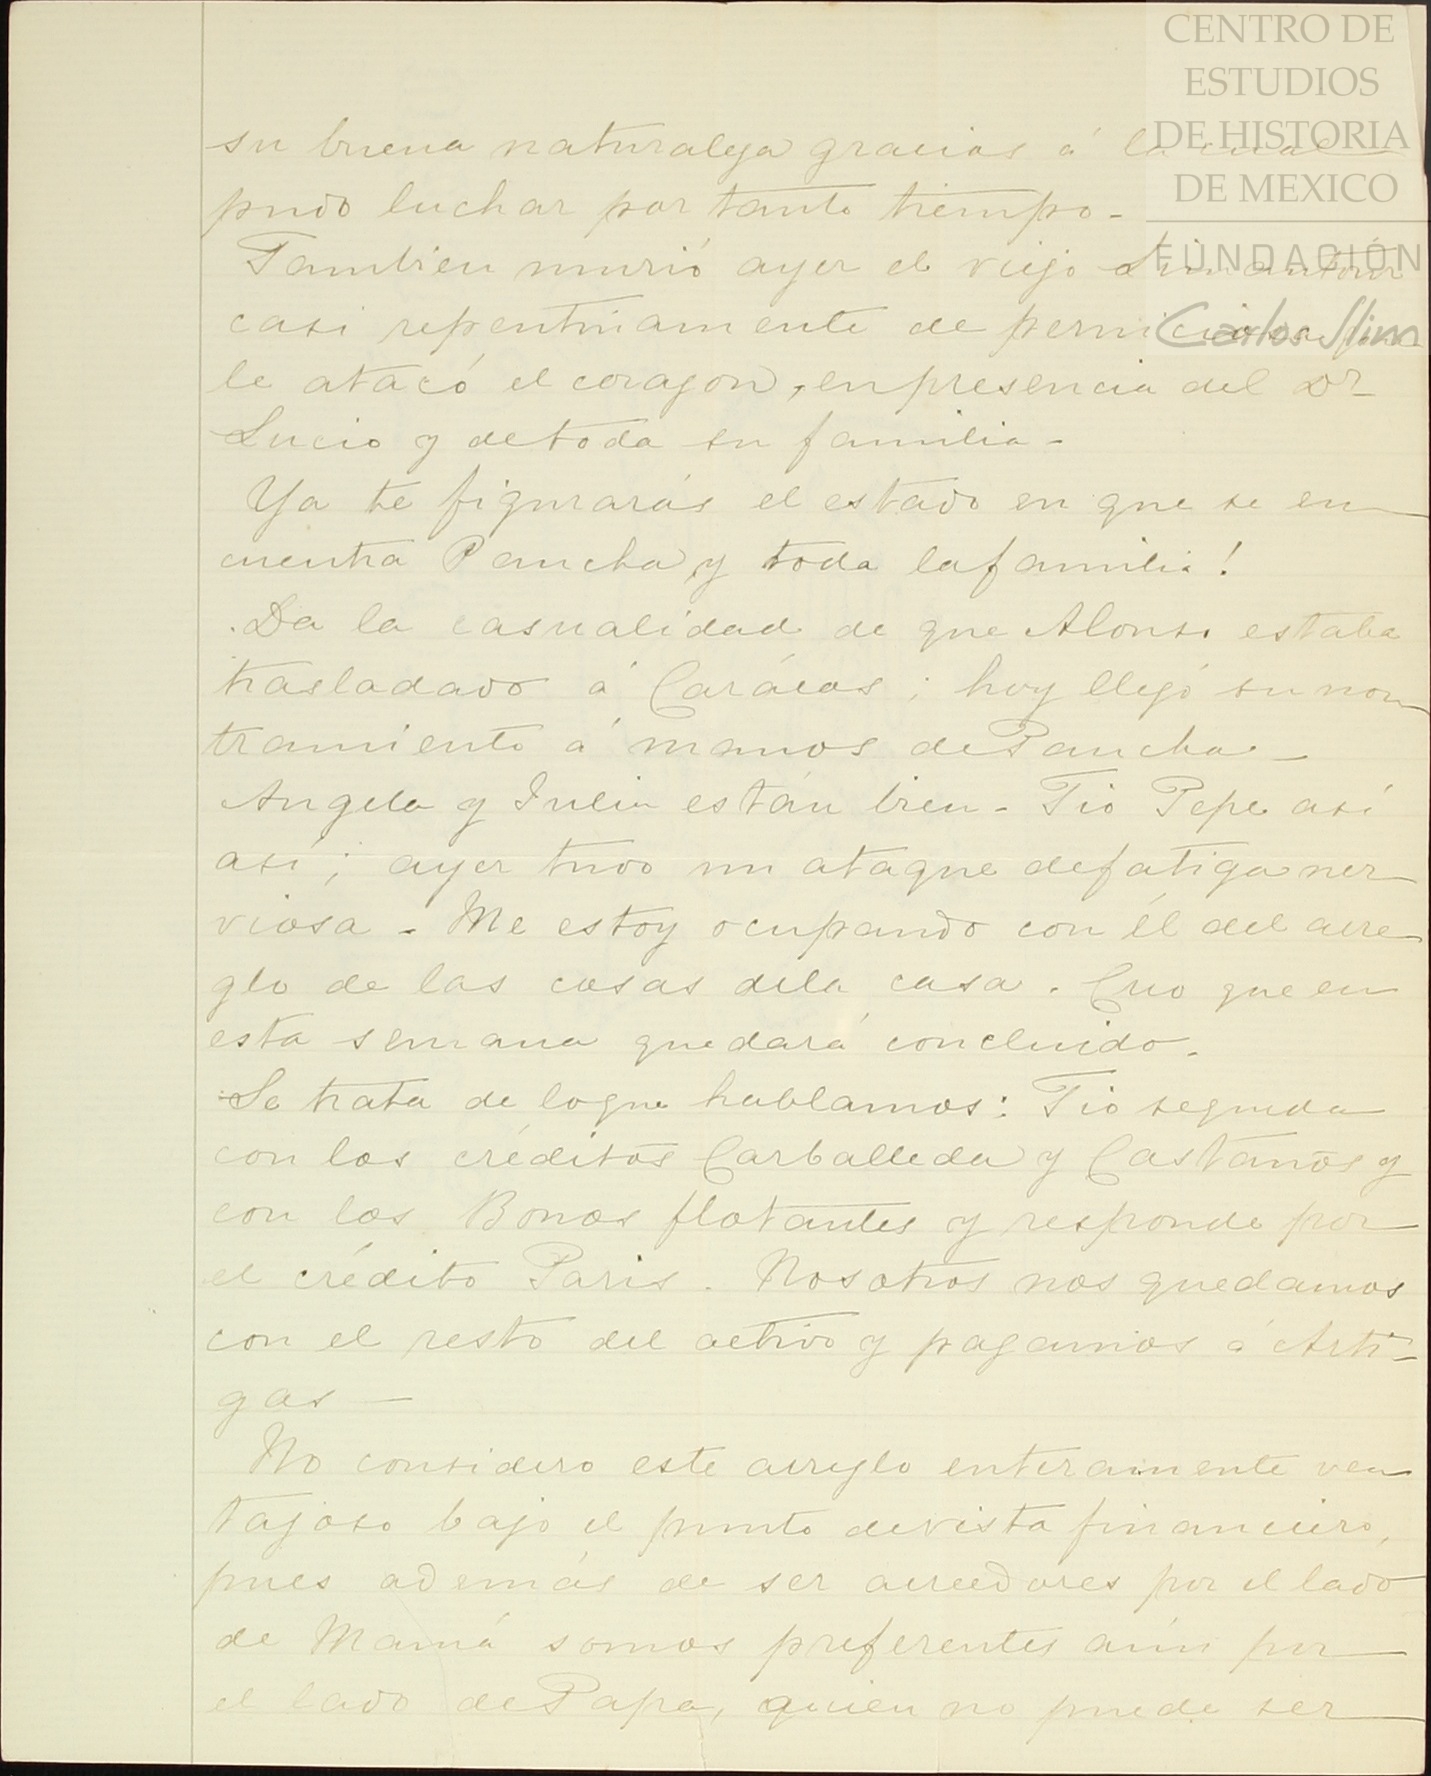 CENTRO DE
ESTUDIOS
DE HISTORIA
DE MEXICO
FUNDACIÓN
Carlos Slim
su buena naturaleza gracias á la cual
pudo luchar por tanto tiempo -
Tambien murió ayer el viejo Limantour
casi repentinamente de perniciosa
le atacó el corazon, en presencia del Dr
Lucio y de toda su familia -
Ya te figurarás el estado en que se en
cuentra Pancha y toda la familia!
Da la casualidad de que Alonso estaba
trasladado á Carácas; hoy llegó su nom
bramiento á manos de Pancha -
Angela y Julia están bien - Tio Pepe así
así; ayer tuvo un ataque de fatiga ner
viosa - Me estoy ocupando con él del arre
glo de las cosas de la casa. Creo que en
esta semana quedará concluido.
Se trata de loque hablamos: Tio se queda
con los créditos Carballeda y Castaños y
con los Bonos flotantes y responde por
el crédito Paris. Nosotros nos quedamos
con el resto del activo y pagamos á Arti-
gas -
No considero este arreglo enteramente ven
tajoso bajo el punto de vista financiero,
pues además de ser acreedores por el lado
de Mamá somos preferentes aún por
el lado de Papa, quien no puede ser